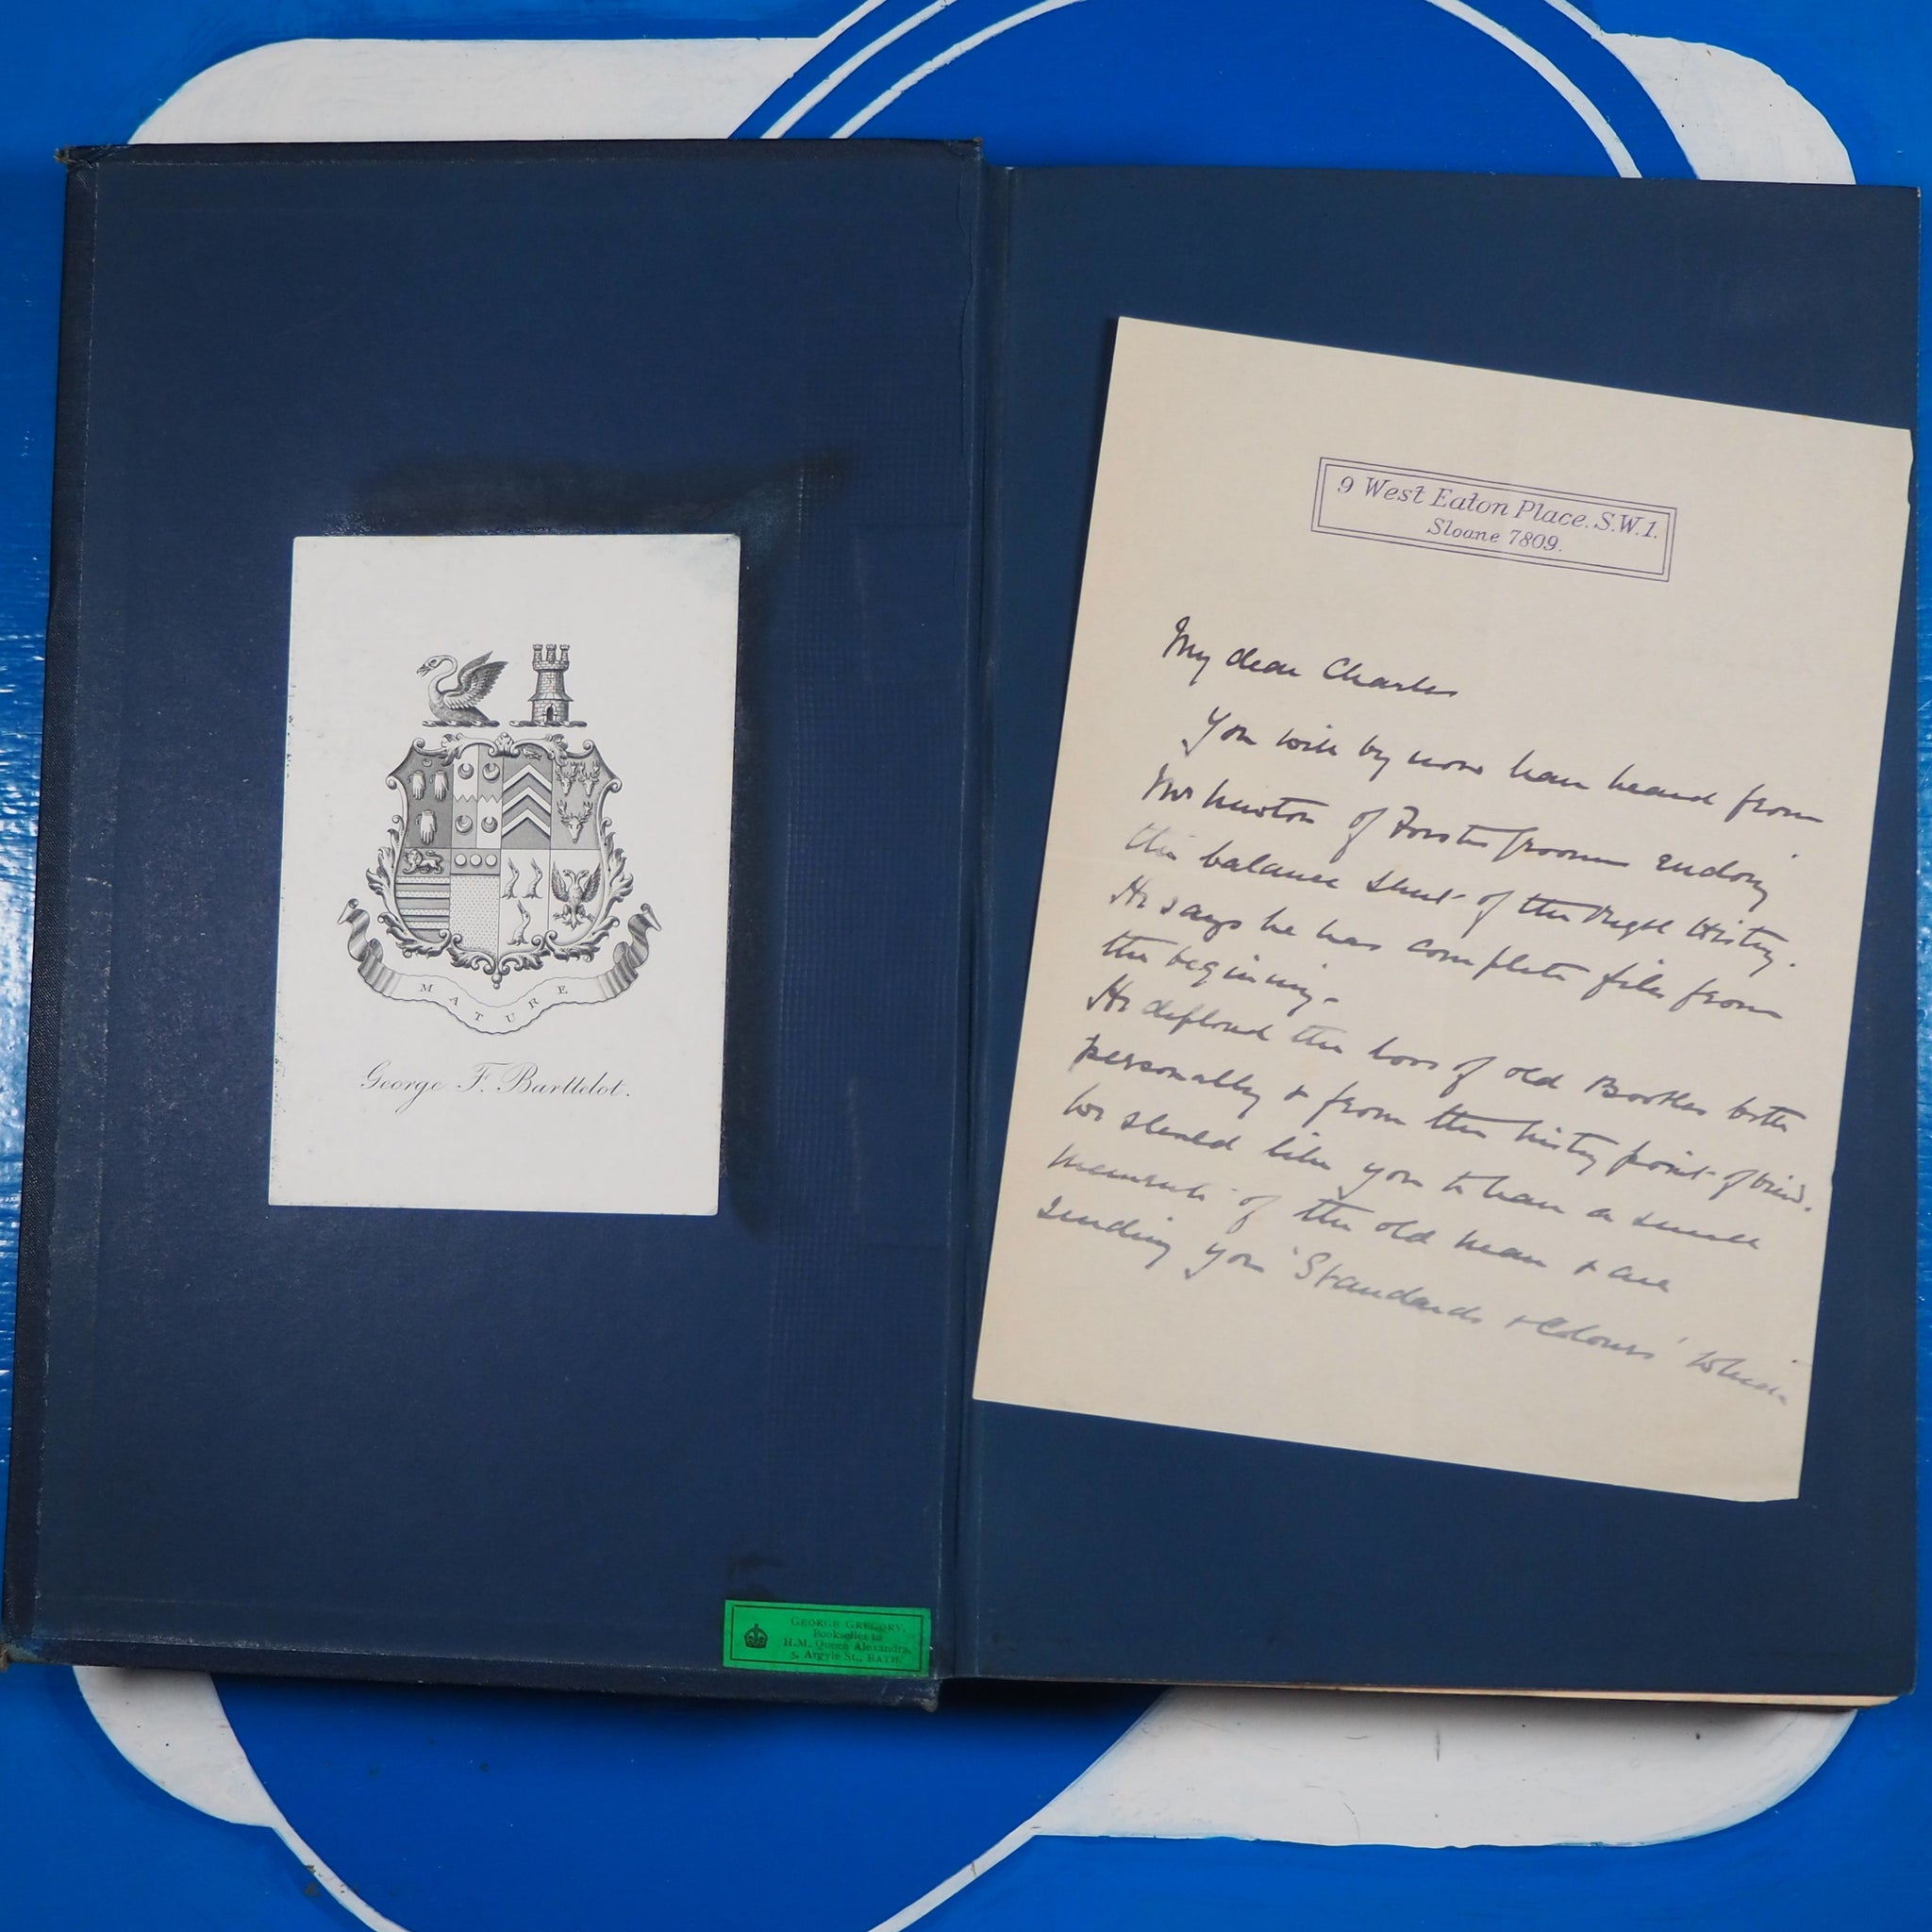 MATURE
George F. Barttelot.
GEORGE GREGORY,
Bookseller to
H.M. Queen Alexandra,
5, Argyle St., BATH.
9 West Eaton Place. S.W.1.
Sloane 7809.
My dear Charles
You will by now have heard from
Mr Newton of Forster Groom
the balance sheet of the Regtl History.
He says he has complete files from
the beginning.
He deplored the loss of old both
personally & from the history point of view.
We should like you to have a small
memento of the old man & are
sending you 'Standards & Colours' which